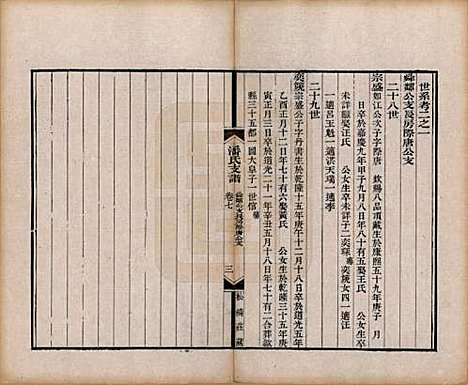 世系考二之一
舜鄰公支長房際唐公支
二十八世
宗盛如江公次子字際唐 欽賜八品頂戴生於康熙五十九年庚子 月
日卒於嘉慶九年甲子九月八日年八十有五娶王氏 公女生卒
未詳繼娶汪氏 公女生卒未詳子二奕琛奕統女四一適汪
一適呂王魁一適洪天瑞一適李
二十九世
奕統宗盛公子字丹書生於乾隆十五年庚午十二月十八日卒於道光五年
乙酉正月十二日年七十有六娶黃氏 公女生於乾隆三十五年庚
寅正月三日卒於道光二十一年辛丑五月十八日年七十有二合葬歙
縣三十五都一圖大皇子一世信
潘氏支譜
卷七
舜鄰公支長房際唐公支
三
松鱗莊藏